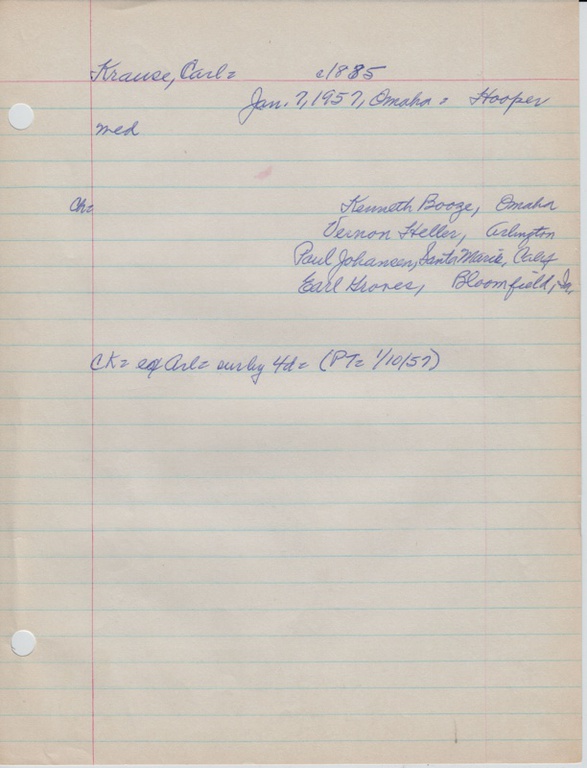 Krause, Carl= c1885
Jan. 7, 1957, Omaha = Hooper
med
Ch=
Kenneth Booze, Omaha
Vernon Heller, Arlington
Paul Johansen, Santa Marie, Calif
Earl Groves, Bloomfield, Ia.
CK= ex Arl= sur by 4d= (PT= 1/10/57)